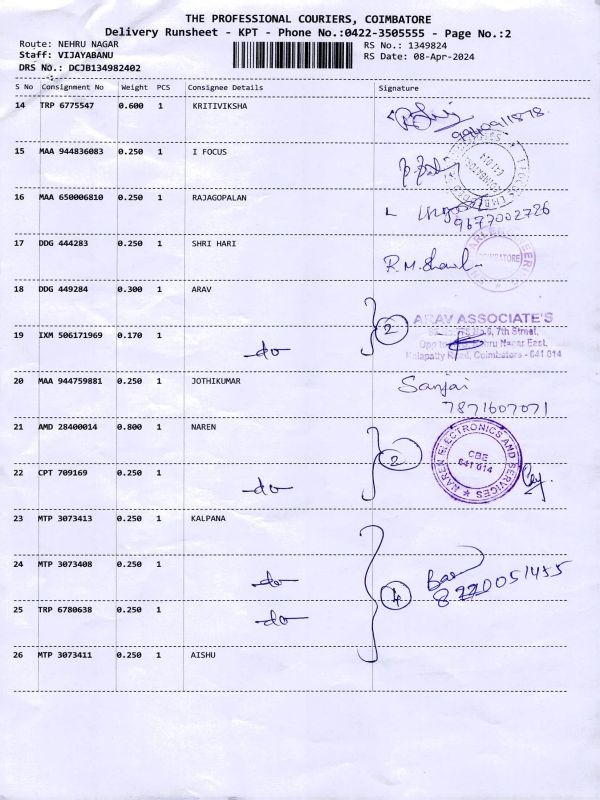 THE PROFESSIONAL COURIERS, COIMBATORE
Delivery Runsheet - KPT - Phone No.:0422-3505555 - Page No.:2
Route: NEHRU NAGAR RS No.: 1349824
Staff: VIJAYABANU RS Date: 08-Apr-2024
DRS No.: DCJB134982402
S No Consignment No Weight PCS Consignee Details Signature
14 TRP 6775547 0.600 1 KRITIVIKSHA
15 MAA 944836083 0.250 1 I FOCUS
16 MAA 650006810 0.250 1 RAJAGOPALAN
9677002726
17 DDG 444283 0.250 1 SHRI HARI
COIMBATORE
18 DDG 449284 0.300 1 ARAV
2 ARAV ASSOCIATE'S
7th Street,
Nehru Nagar East,
Kalapatty Road, Coimbatore - 641 014
19 IXM 506171969 0.170 1 -do-
20 MAA 944759881 0.250 1 JOTHIKUMAR Sanjai
7871607071
21 AMD 28400014 0.800 1 NAREN
2 NAREN ELECTRONICS AND SERVICES
CBE
641 014
22 CPT 709169 0.250 1 -do-
23 MTP 3073413 0.250 1 KALPANA
24 MTP 3073408 0.250 1 -do-
4 8220051455
25 TRP 6780638 0.250 1 -do-
26 MTP 3073411 0.250 1 AISHU